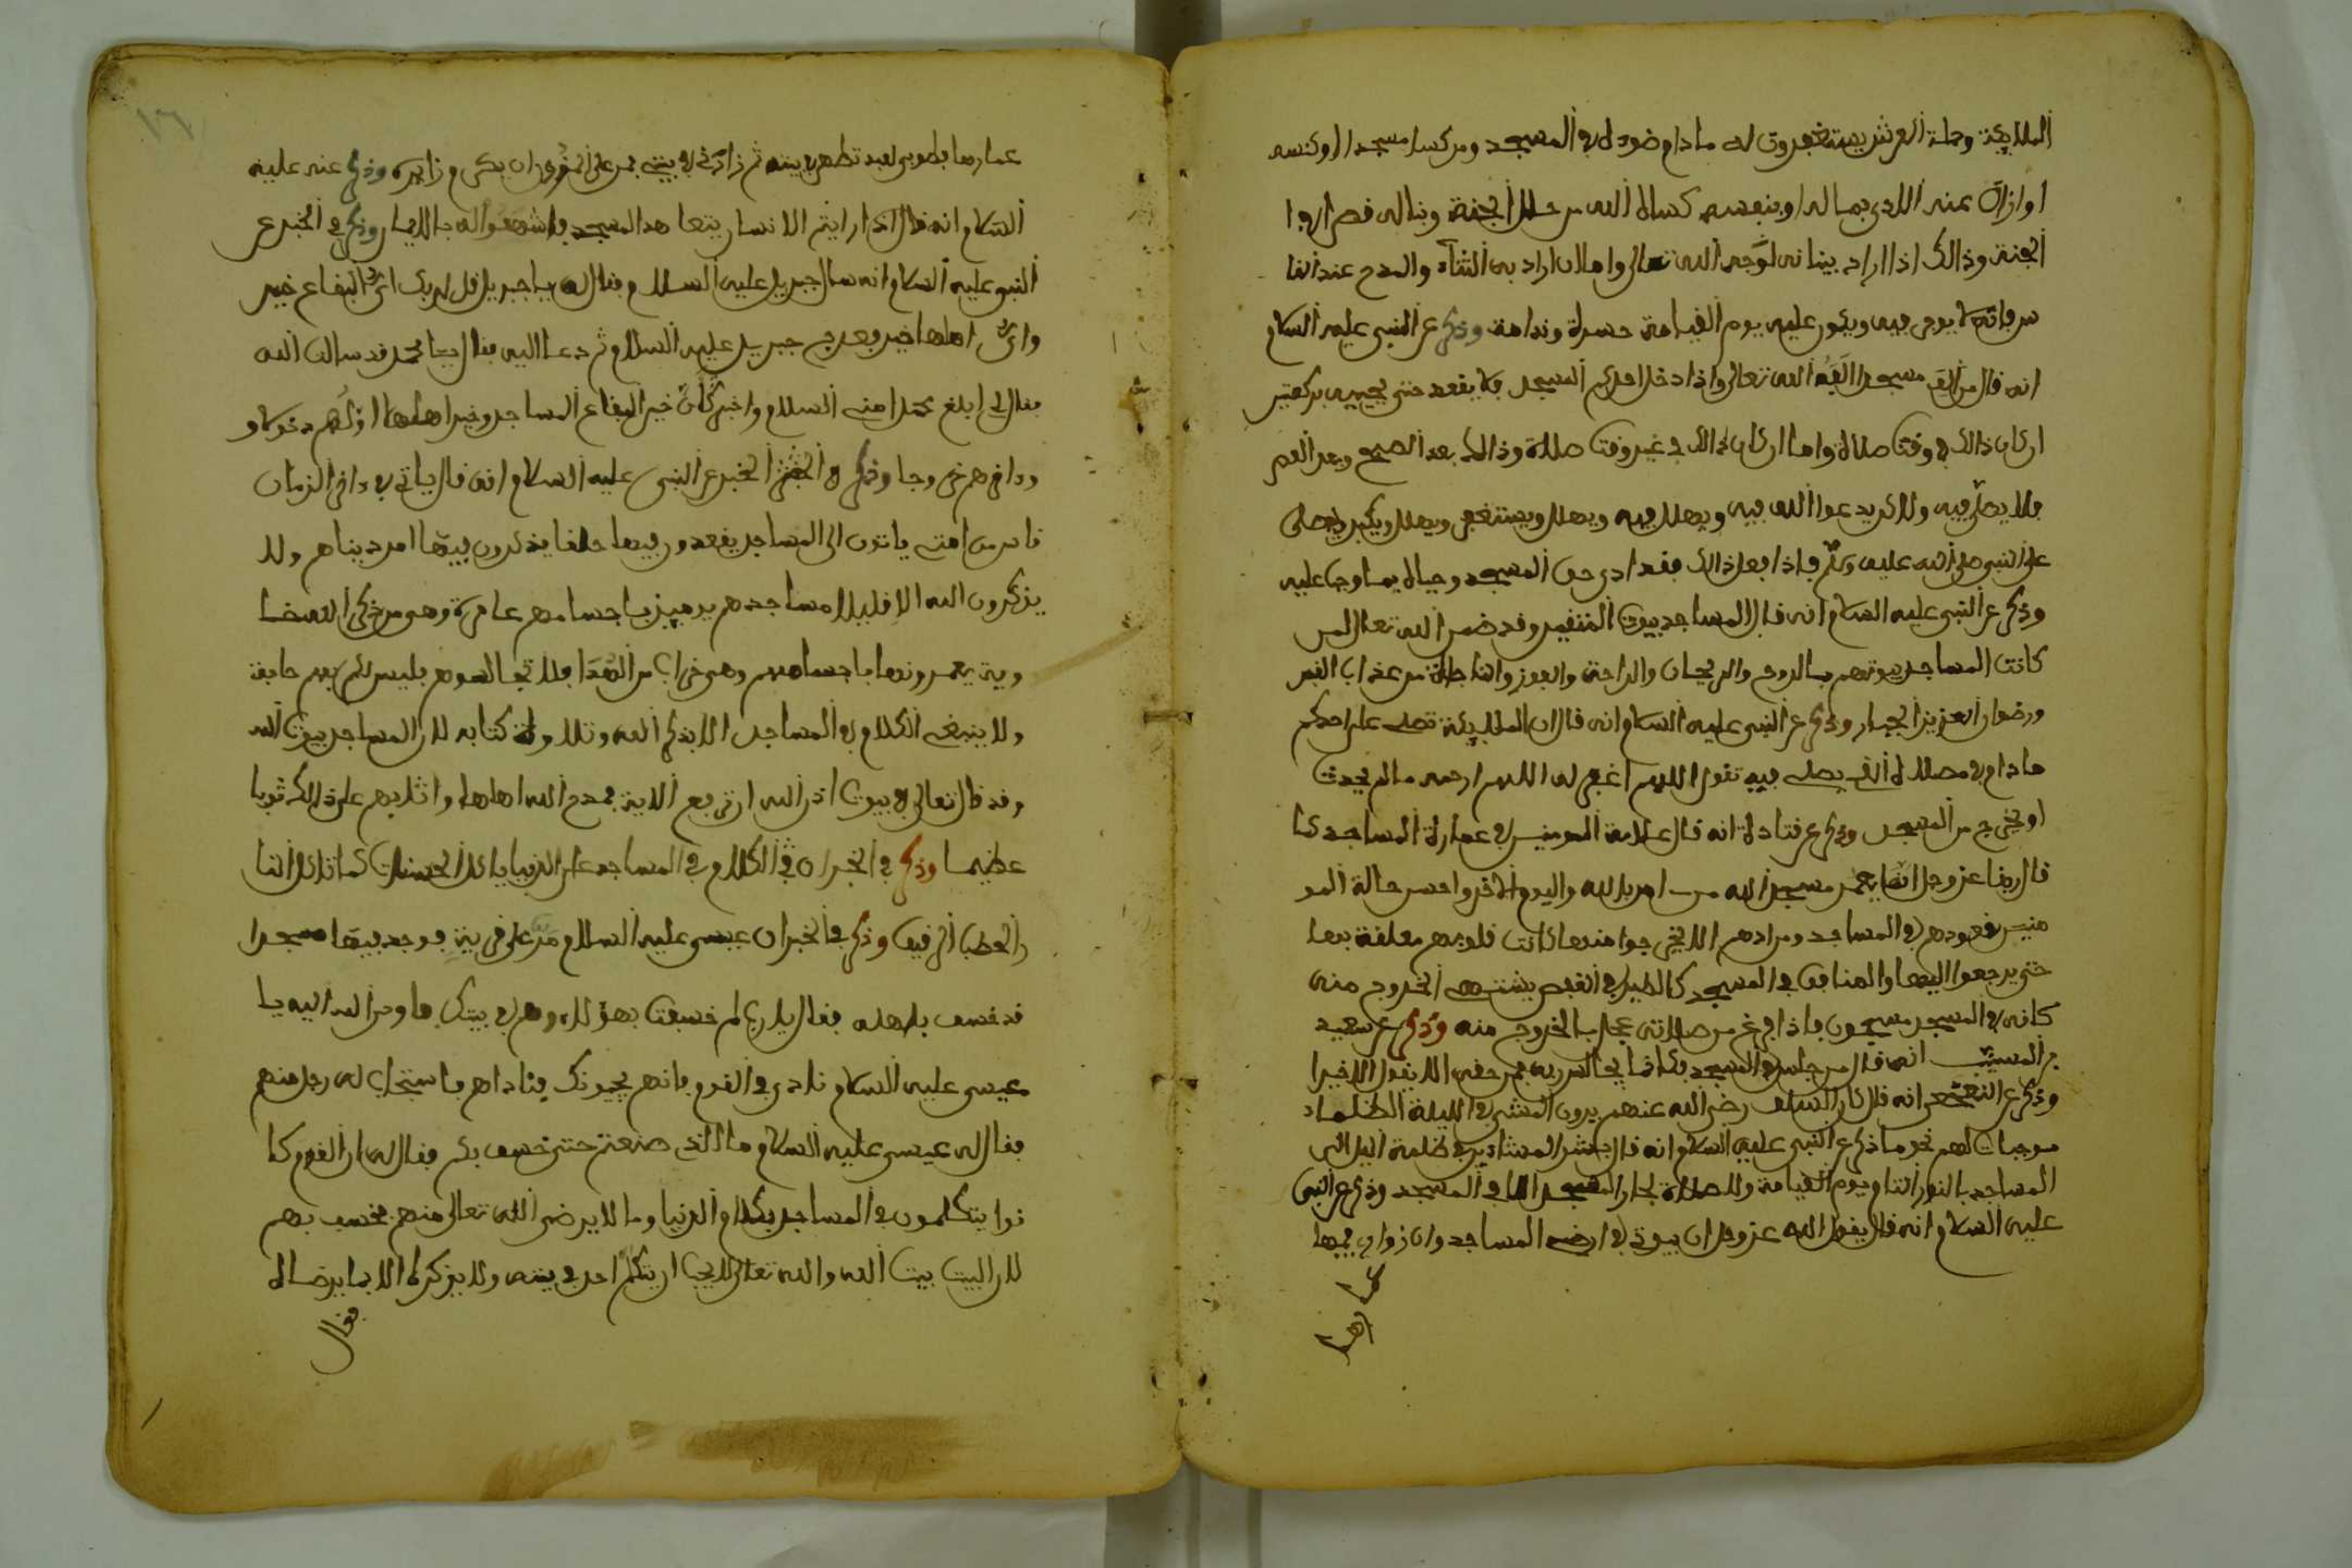 الملايكة وحملة العرش يستغفرون له ما دام ضوءه في المسجد ومن كسا مسجدا او كنسه
او ازال عنه الاذى بماله او بنفسه كساه الله من حلل الجنة وبنا له قصرا في
الجنة وذالك اذا اراد ببنائه لوجه الله تعالى واما ان اراد به الثناء والمدح عند النا
س فانه لا يوجر فيه ويكون عليه يوم القيامة حسرة وندامة وذكر عن النبي عليه السلام
انه قال من الف مسجدا الفه الله تعالى واذا دخل احدكم المسجد فلا يقعد حتى يحييه بركعتين
ان كان ذالك في وقت صلاة واما ان كان ذالك في غير وقت صلاة وذالك بعد الصبح وبعد العصر
فلا يصلي فيه ولاكن يدعوا الله فيه ويهلل فيه ويهلل ويستغفر ويهلل ويكبر ويصلى
على النبي صلى الله عليه وسلم فاذا فعل ذالك فقد ادى حق المسجد وحياه بما وجب عليه
وذكر عن النبي عليه السلام انه قال المساجد بيوت المتقين وقد ضمن الله تعالى لمن
كانت المساجد بيوتهم بالروح والريحان والراحة والجوز والنجاة من عذاب القبر
ورضوان العزيز الجبار وذكر عن النبي عليه السلام انه قال ان الملايكة تصلى على احدكم
ما دام في مصلاه الذي يصلى فيه تقول اللهم اغفر له اللهم ارحمه ما لم يحدث
او يخرج من المسجد وذكر عن قتادة انه قال علامة المومنين في عمارة المساجد كما
قال ربنا عز وجل انما يعمر مسجد الله من امن بالله واليوم الاخر واحسن حالة المو
منين قعودهم في المساجد ومرادهم الا يخرجوا منها كانت قلوبهم معلقة بها
حتى يرجعوا اليها والمنافق في المسجد كالطير في القفص يشتهى الخروج منه
كانه في المسجد مسجون فاذا فرغ من صلاته عجل بالخروج منه وذكر عن سعيد
بن المسيب انه قال من جلس في المسجد فكانما يجالس ربه فمن حقه الا يقول الا خيرا
وذكر عن النخعي انه قال كان السلف رضي الله عنهم يرون المشي في الليلة الظلماء
موجبات لهم نحو ما ذكر عن النبي عليه السلام انه قال بشر المشائين في ظلمة اليل الى
المساجد بالنور التام يوم القيامة ولا صلاة لجار المسجد الا في المسجد وذكر عن النبي
عليه السلام انه قال يقول الله عز وجل ان بيوتي في ارضى المساجد وان زواري فيها
عمارها
عمارها فطوبى لعبد تطهر في بيته ثم زارني في بيتى فحق على المزور ان يكرم زايره وذكر عنه عليه
السلام انه قال اذا رايتم الانسان يتعاهد المسجد فاشهدوا له بالايمان وذكر في الخبر عن
النبي عليه السلام انه سال جبريل عليه السلام فقال له يا جبريل قل لربك اي البقاع خير
واي اهلها خير فعرج جبريل عليه السلام ثم دعا اليه فقال يا محمد قد سالت الله
فقال لي ابلغ محمدا منى السلام واخبره ان خير البقاع المساجد وخير اهلها اولهم دخولا و
واخرهم خروجا وذكر في الخبر عن النبي عليه السلام انه قال ياتي في اخر الزمان
ناس من امتى ياتون الى المساجد يقعدون فيها حلقا يذكرون فيها امر دنياهم ولا
يذكرون الله الا قليلا مساجدهم يوميذ باجسامهم عامرة وهي من ذكر الله خا
وية يعمرونها باجسامهم وهي خراب من الهدا فلا تجالسوهم فليس لله بهم حاجة
ولا ينبغى الكلام في المساجد الا بذكر الله وتلاوة كتابه لان المساجد بيوت الله
وقد قال تعالى في بيوت اذن الله ان ترفع الاية فمدح الله اهلها واثابهم على ذالك ثوبا
عظيما وذكر في الخبر ان الكلام في المساجد على الدنيا ياكل الحسنات كما تاكل النا
ر الحطب الرقيق وذكر في الخبر ان عيسى عليه السلام مر على قرية فوجد فيها مسجدا
قد خسف باهله فقال يا رب لم خسفت بهؤلاء وهم في بيتك فاوحى الله اليه يا
عيسى عليه السلام نادي في القوم فانهم يجيبونك فناداهم فاستجاب له رجل منهم
فقال له عيسى عليه السلام ما الذي صنعتم حتى خسف بكم فقال له ان القوم كا
نوا يتكلمون في المساجد بكلام الدنيا وما لا يرضى الله تعالى منهم فخسف بهم
لان البيت بيت الله والله تعالى لا يحب ان يتكلم احد في بيته ولا يذكره الا بما يرضاه
فقال